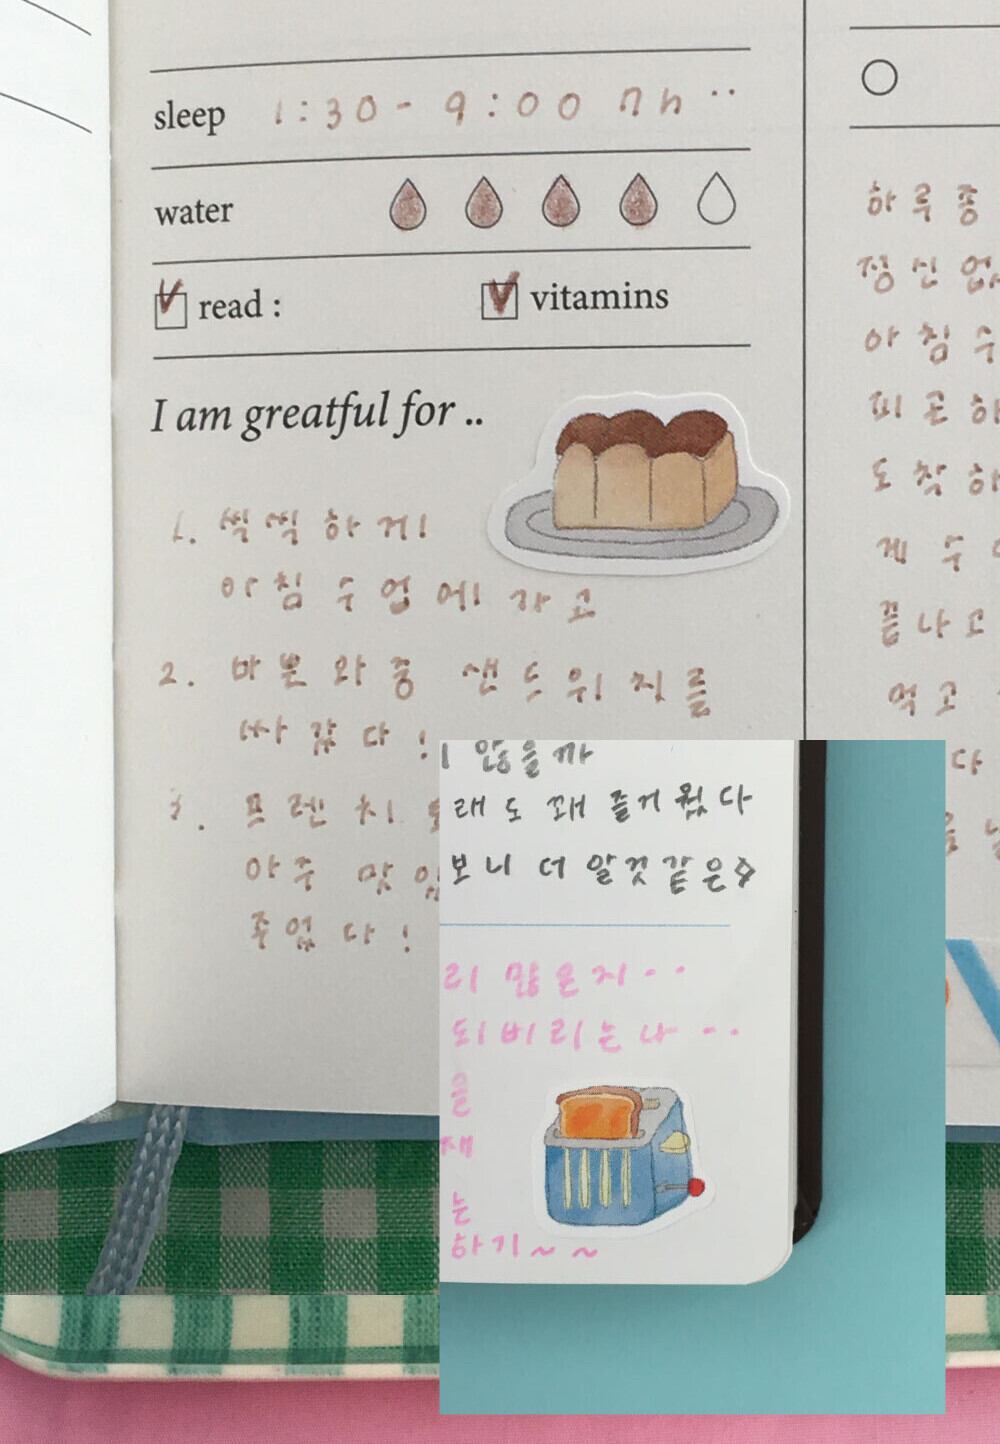 sleep 1:30 - 9:00 7h ..
water
read : vitamins
I am greatful for ..
1. 씩씩하게!
아침 수업에! 가고
2. 바본와중 샌드위치를
싸갔다!
3. 프렌치
아주 맛있
주었다!
하루종
정신없
아침수
피곤하
도착하
게 수
끝나고
먹고
다
않을까
래도 꽤 즐거웠다
보니 더 알것같은
리 많은지..
되버리는나..
을
재
는
하기~~